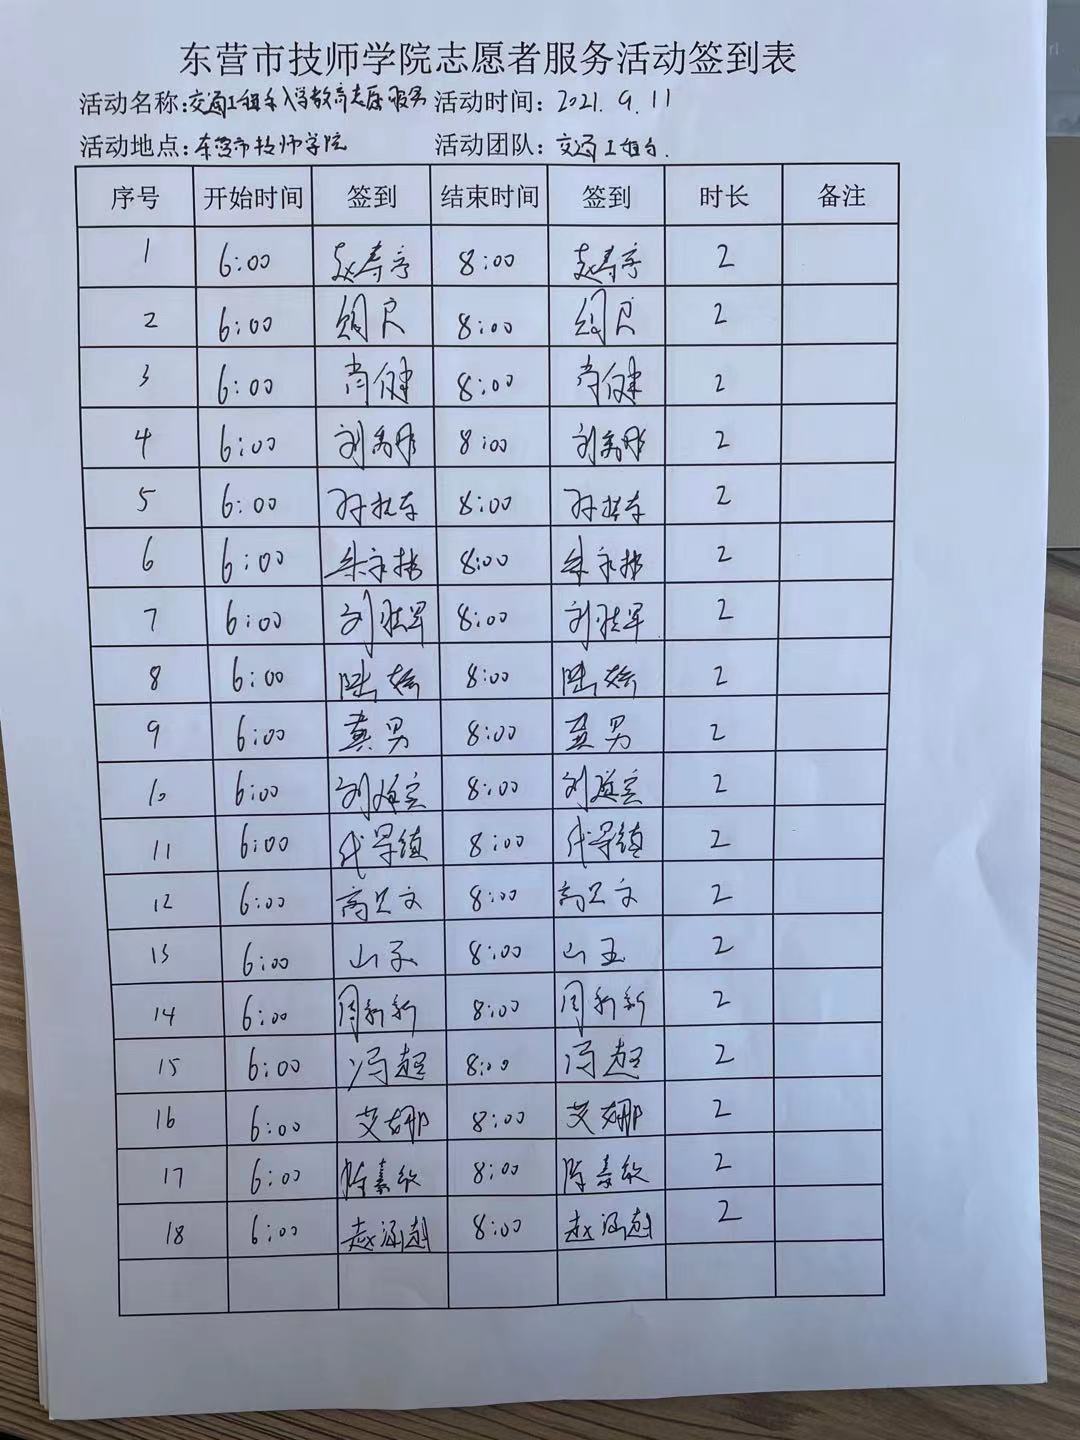 东营市技师学院志愿者服务活动签到表
活动名称:交通工程系入学教育志愿服务 活动时间: 2021.9.11
活动地点:东营市技师学院 活动团队: 交通工程系.
序号 开始时间 签到 结束时间 签到 时长 备注
1 6:00 赵春彦 8:00 赵春彦 2
2 6:00 8:00 2
3 6:00 肖健 8:00 肖健 2
4 6:00 刘秀彤 8:00 刘秀彤 2
5 6:00 8:00 2
6 6:00 朱永梅 8:00 朱永梅 2
7 6:00 8:00 2
8 6:00 陆娇 8:00 陆娇 2
9 6:00 龚男 8:00 龚男 2
10 6:00 8:00 2
11 6:00 8:00 2
12 6:00 8:00 2
13 6:00 山玉 8:00 山玉 2
14 6:00 周新新 8:00 周新新 2
15 6:00 冯超 8:00 冯超 2
16 6:00 艾娜 8:00 艾娜 2
17 6:00 陈素敏 8:00 陈素敏 2
18 6:00 赵涵越 8:00 赵涵越 2